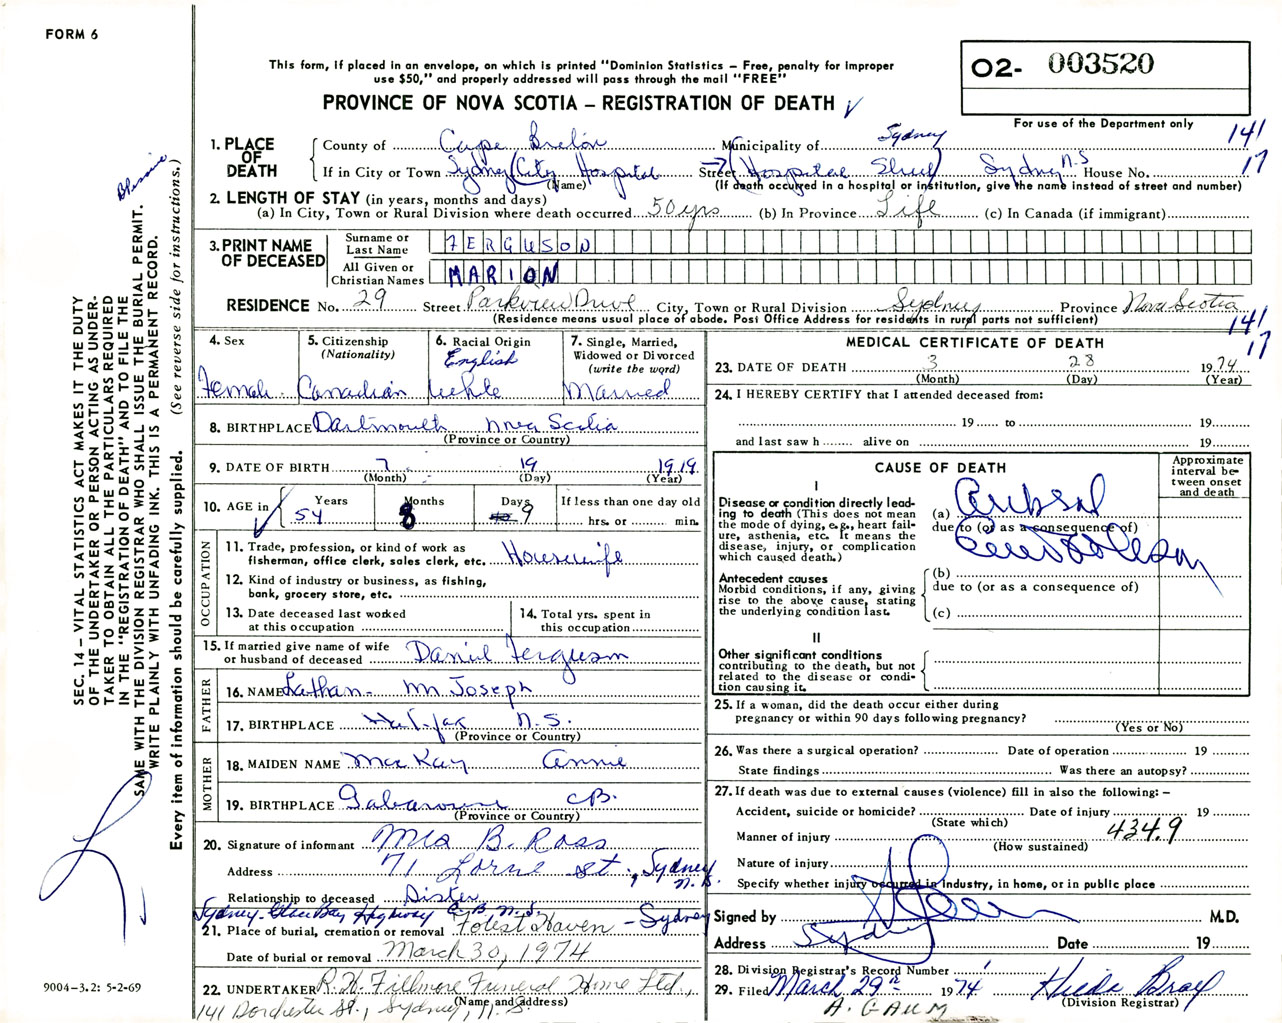 FORM 6
This form, if placed in an envelope, on which is printed "Dominion Statistics – Free, penalty for improper
use $50," and properly addressed will pass through the mail "FREE"
PROVINCE OF NOVA SCOTIA – REGISTRATION OF DEATH
O2- 003520
For use of the Department only
141
17
1. PLACE OF DEATH
County of Cape Breton Municipality of Sydney
If in City or Town Sydney (City Hospital Street Hospital Street) Sydney N.S House No.
(Name) (If death occurred in a hospital or institution, give the name instead of street and number)
2. LENGTH OF STAY (in years, months and days)
(a) In City, Town or Rural Division where death occurred 50 yrs (b) In Province Life (c) In Canada (if immigrant)
3. PRINT NAME OF DECEASED
Surname or Last Name FERGUSON
All Given or Christian Names MARION
RESIDENCE No. 29 Street Parkview Drive City, Town or Rural Division Sydney Province Nova Scotia
(Residence means usual place of abode. Post Office Address for residents in rural parts not sufficient)
141
17
4. Sex Female
5. Citizenship (Nationality) Canadian
6. Racial Origin English White
7. Single, Married, Widowed or Divorced (write the word) Married
8. BIRTHPLACE Dartmouth Nova Scotia
(Province or Country)
9. DATE OF BIRTH 7 19 1919
(Month) (Day) (Year)
10. AGE in Years 54 Months 8 Days 9 If less than one day old
hrs. or min.
OCCUPATION
11. Trade, profession, or kind of work as
fisherman, office clerk, sales clerk, etc. Housewife
12. Kind of industry or business, as fishing,
bank, grocery store, etc.
13. Date deceased last worked
at this occupation
14. Total yrs. spent in
this occupation
15. If married give name of wife
or husband of deceased Daniel Ferguson
FATHER
16. NAME Lathan M Joseph
17. BIRTHPLACE Halifax N.S.
(Province or Country)
MOTHER
18. MAIDEN NAME MacKay Annie
19. BIRTHPLACE Gabarouse C.B.
(Province or Country)
20. Signature of informant Mrs B. Ross
Address 71 Lorne St., Sydney N.S.
Relationship to deceased Sister
Sydney-Glace Bay Highway C.B. N.S.
21. Place of burial, cremation or removal Forest Haven – Sydney
Date of burial or removal March 30, 1974
22. UNDERTAKER R.W. Fillmore Funeral Home Ltd.,
(Name and address)
141 Dorchester St., Sydney, N.S.
MEDICAL CERTIFICATE OF DEATH
23. DATE OF DEATH 3 28 1974
(Month) (Day) (Year)
24. I HEREBY CERTIFY that I attended deceased from:
19 to 19
and last saw h alive on 19
CAUSE OF DEATH
Approximate interval between onset and death
I
Disease or condition directly lead-
ing to death (This does not mean
the mode of dying, e.g., heart fail-
ure, asthenia, etc. It means the
disease, injury, or complication
which caused death.)
(a) Cerebral
due to (or as a consequence of)
Antecedent causes
Morbid conditions, if any, giving
rise to the above cause, stating
the underlying condition last.
(b)
due to (or as a consequence of)
(c)
II
Other significant conditions
contributing to the death, but not
related to the disease or condi-
tion causing it.
25. If a woman, did the death occur either during
pregnancy or within 90 days following pregnancy?
(Yes or No)
26. Was there a surgical operation? Date of operation 19
State findings Was there an autopsy?
27. If death was due to external causes (violence) fill in also the following: –
Accident, suicide or homicide? Date of injury 19
(State which)
Manner of injury 434.9
(How sustained)
Nature of injury
Specify whether injury occurred in industry, in home, or in public place
Signed by M.D.
Address Sydney Date 19
28. Division Registrar's Record Number 1
29. Filed March 29th 1974 Hilda Bray
(Division Registrar)
A. GAUM
SEC. 14 – VITAL STATISTICS ACT MAKES IT THE DUTY
OF THE UNDERTAKER OR PERSON ACTING AS UNDER-
TAKER TO OBTAIN ALL THE PARTICULARS REQUIRED
IN THE "REGISTRATION OF DEATH" AND TO FILE THE
SAME WITH THE DIVISION REGISTRAR WHO SHALL ISSUE THE BURIAL PERMIT.
WRITE PLAINLY WITH UNFADING INK. THIS IS A PERMANENT RECORD.
Every item of information should be carefully supplied. (See reverse side for instructions.)
9004-3.2: 5-2-69